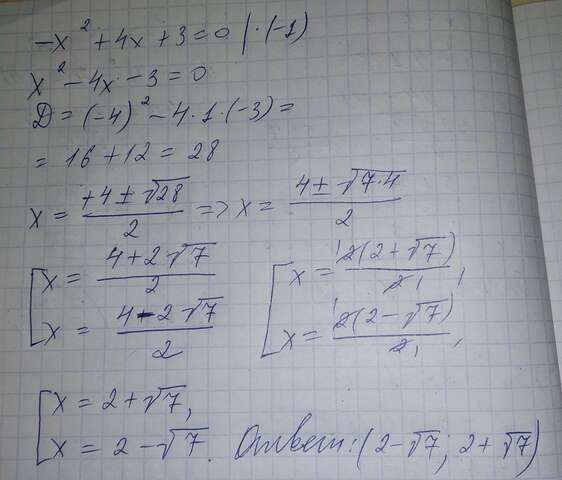 -x² + 4x + 3 = 0 | · (-1)
x² - 4x - 3 = 0
D = (-4)² - 4 · 1 · (-3) =
= 16 + 12 = 28
x = (+4 ± √28)/2 => x = (4 ± √(7·4))/2
[ x = (4 + 2√7)/2 [ x = (2(2 + √7))/2,
x = (4 - 2√7)/2 x = (2(2 - √7))/2,
[ x = 2 + √7,
x = 2 - √7. Ответ: (2 - √7; 2 + √7)